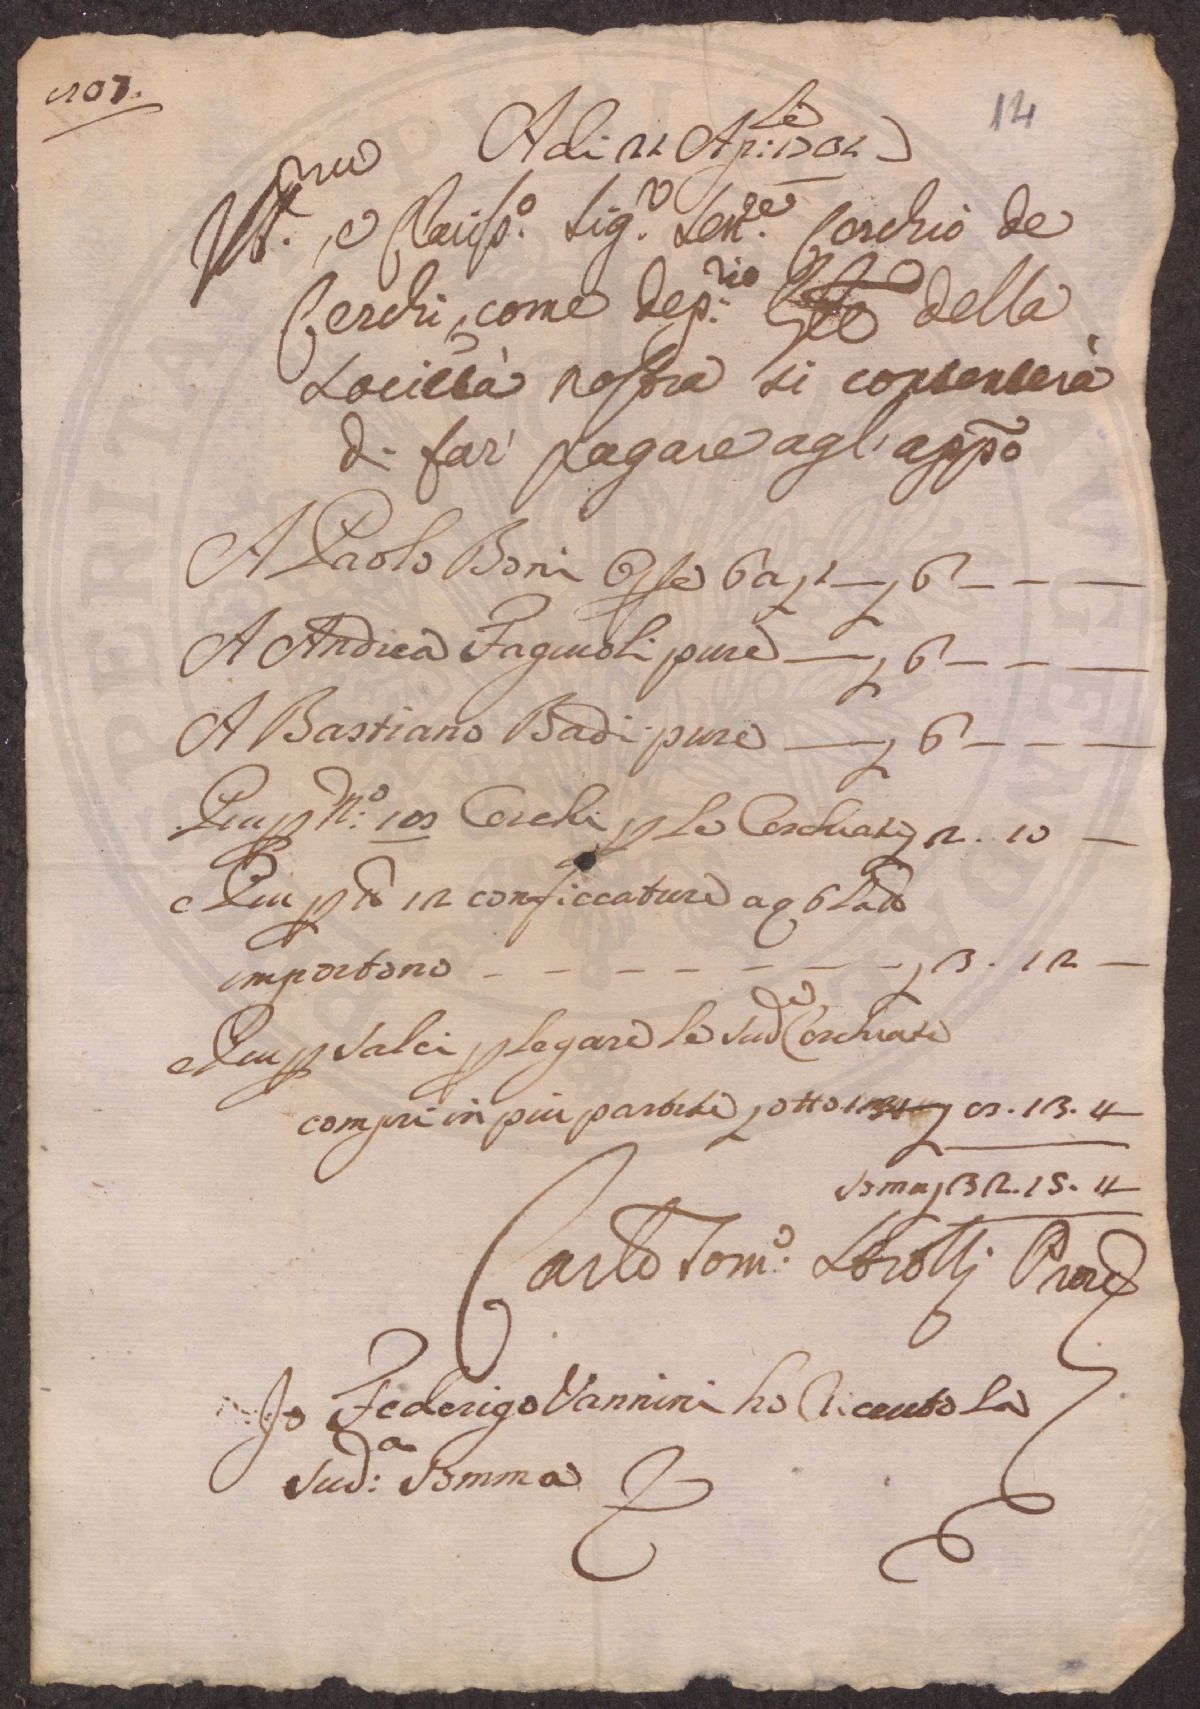 107.
14
Adi 21 Ap:le 1732
Ill.mo e Clariss.o Sig.r Sen.re Cerchio de
Cerchi, come dep.rio della
Società nostra si contenterà
di far' pagare agl' app.o
A Paolo Boni Op.e 6 a £ 1 — £ 6 — — —
A Andrea Fagiuoli pure — £ 6 — — —
A Bastiano Badi pure — £ 6 — — —
Piu p N.o 100 Cerchi p le Cerchiate £ 2. 10 —
e Piu p 12 conficcature a q 6 l'una
importono — — — — — — — £ 3. 12 —
e Piu p salci p legare le sud.e Cerchiate
compri in piu partite £ otto 13.4 £ 8. 13. 4
Somma £ 32. 15. 4
Carlo Tom.o Lorotti Prore
Io Federigo Vannini ho Riceuto la
sud:a Somma